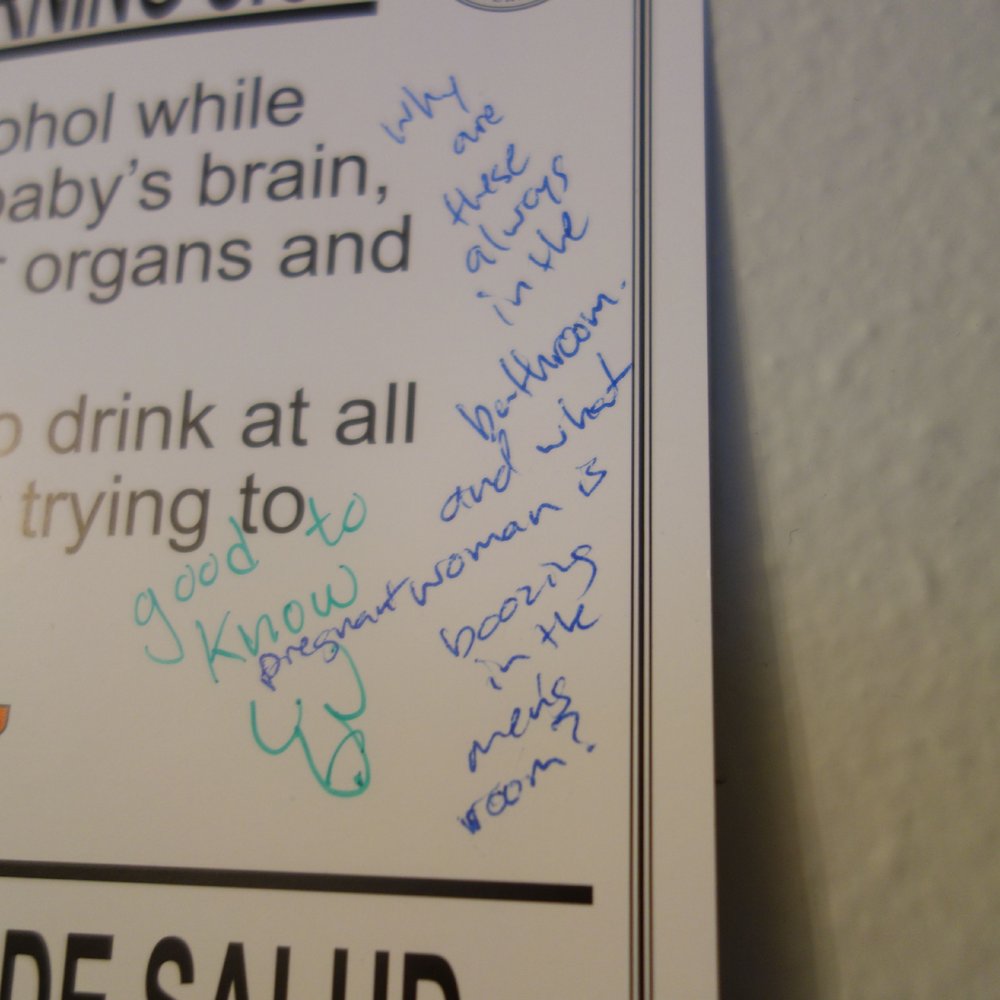 ohol while
baby's brain,
organs and
drink at all
trying to
why
are
these
always
in the
bathroom.
and what
pregnant woman is
boozing
in the
men's
room?
good to
know
DE SALUD